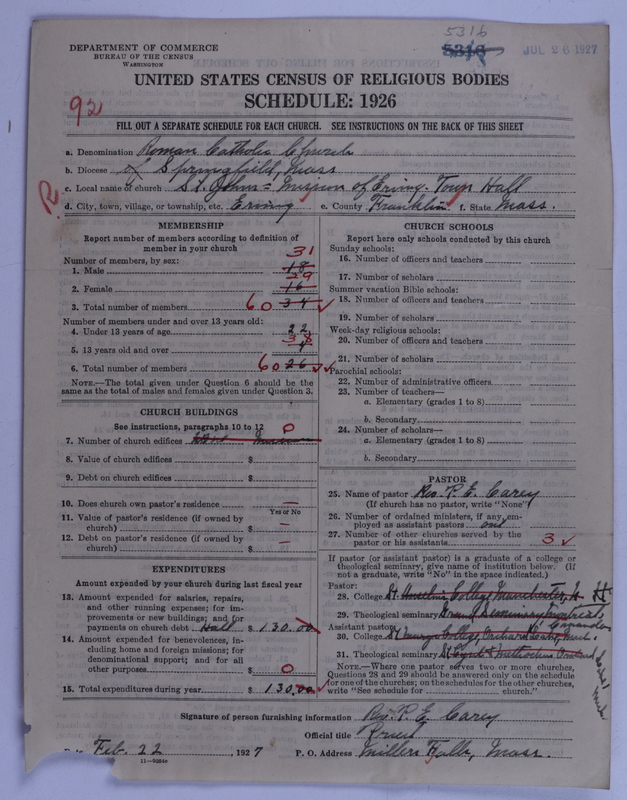 5316
5316 JUL 26 1927
DEPARTMENT OF COMMERCE
BUREAU OF THE CENSUS
WASHINGTON
UNITED STATES CENSUS OF RELIGIOUS BODIES
SCHEDULE: 1926
92
FILL OUT A SEPARATE SCHEDULE FOR EACH CHURCH. SEE INSTRUCTIONS ON THE BACK OF THIS SHEET
a. Denomination Roman Catholic Church
b. Diocese of Springfield, Mass
c. Local name of church St. Johns = Mission of Erving. Town Hall
R
d. City, town, village, or township, etc. Erving e. County Franklin f. State Mass.
MEMBERSHIP
Report number of members according to definition of
member in your church
Number of members, by sex: 31
1. Male 18
29
2. Female 16
3. Total number of members 60 34
Number of members under and over 13 years old:
4. Under 13 years of age 22
38
5. 13 years old and over 4
6. Total number of members 60 26
NOTE.—The total given under Question 6 should be the
same as the total of males and females given under Question 3.
CHURCH BUILDINGS
See instructions, paragraphs 10 to 12 0
7. Number of church edifices Mission
8. Value of church edifices $
9. Debt on church edifices $
10. Does church own pastor's residence —
Yes or No
11. Value of pastor's residence (if owned by
church) $ —
12. Debt on pastor's residence (if owned by
church) $ —
EXPENDITURES
Amount expended by your church during last fiscal year
13. Amount expended for salaries, repairs,
and other running expenses; for im-
provements or new buildings; and for
payments on church debt Hall $ 130.00
14. Amount expended for benevolences, in-
cluding home and foreign missions; for
denominational support; and for all
other purposes $ 0
15. Total expenditures during year $ 130.00
CHURCH SCHOOLS
Report here only schools conducted by this church
Sunday schools:
16. Number of officers and teachers
17. Number of scholars
Summer vacation Bible schools:
18. Number of officers and teachers
19. Number of scholars
Week-day religious schools:
20. Number of officers and teachers
21. Number of scholars
Parochial schools:
22. Number of administrative officers
23. Number of teachers—
a. Elementary (grades 1 to 8)
b. Secondary
24. Number of scholars—
a. Elementary (grades 1 to 8)
b. Secondary
PASTOR
25. Name of pastor Rev. P. E. Carey
(If church has no pastor, write "None"
26. Number of ordained ministers, if any, em-
ployed as assistant pastors one
27. Number of other churches served by the
pastor or his assistants 3
If pastor (or assistant pastor) is a graduate of a college or
theological seminary, give name of institution below. (If
not a graduate, write "No" in the space indicated.)
Pastor:
28. College St. Anselms College Manchester, N. H
29. Theological seminary Grand Seminary Montreal
Assistant pastor: Canada
30. College St Marys College, Orchard Lake, Mich.
31. Theological seminary St Cyril & Methodius Orchard
Lake
Mich
NOTE.—Where one pastor serves two or more churches,
Questions 28 and 29 should be answered only on the schedule
for one of the churches; on the schedules for the other churches,
write "See schedule for church."
Signature of person furnishing information Rev. P. E. Carey
Official title Priest
Feb. 22, 1927 P. O. Address Millers Falls, Mass.
11—9264c